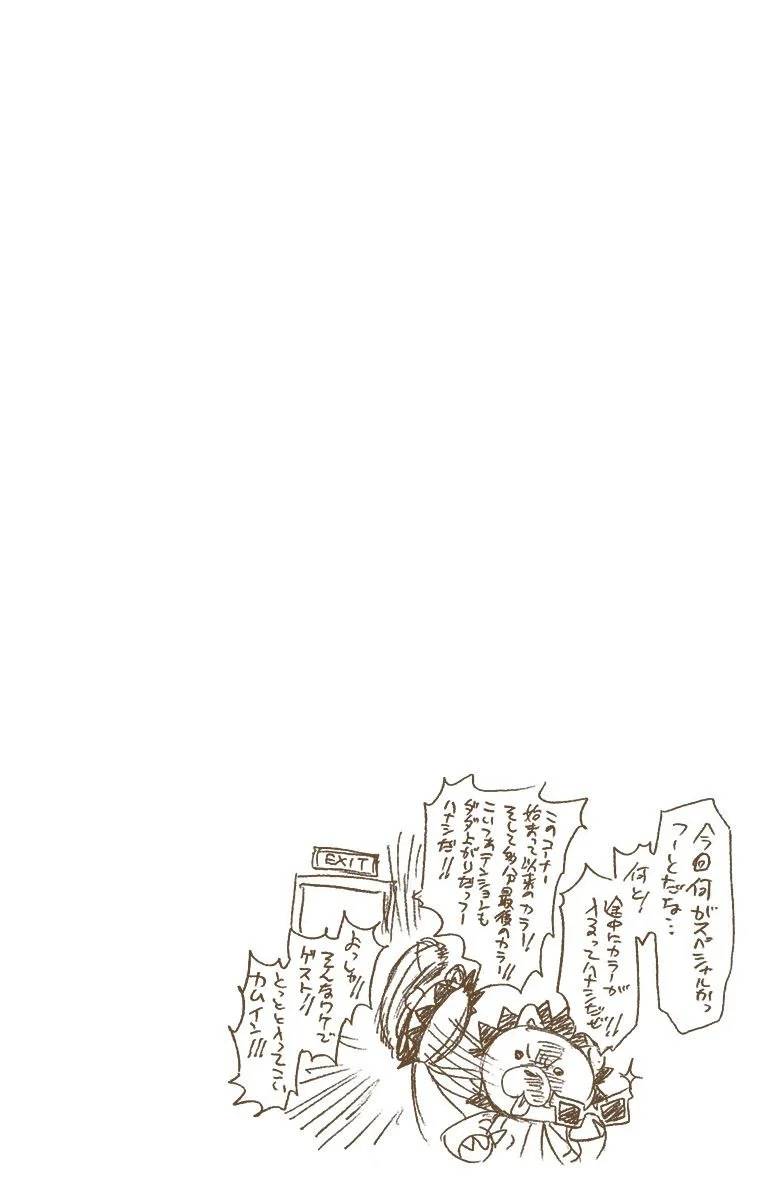 今回何がスペシャルかっ
つーとだな…
何と!
途中にカラーが
入るってハナシだぜ!!
このコーナー
始まって以来のカラー!
そして多分最後のカラー!!
こいつぁテンションも
ダダ上がりだっつー
ハナシだ!!
EXIT
よっしゃ!!
そんなワケで
ゲスト!!
とっとと入ってこい
カムイン!!!